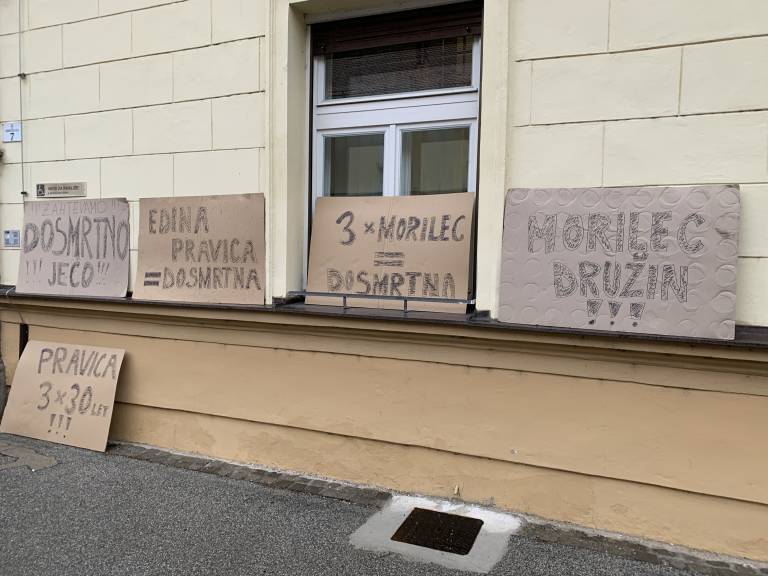 7
ZAHTEVAMO
DOSMRTNO
!!! JEČO !!!
EDINA
PRAVICA
= DOSMRTNA
3 × MORILEC
=
DOSMRTNA
MORILEC
DRUŽIN
!!!
PRAVICA
3 × 30 LET
!!!